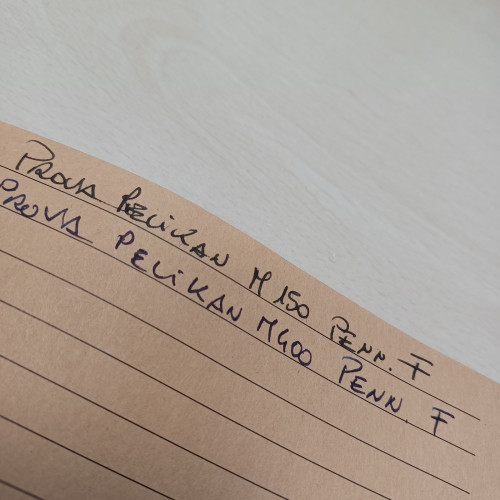 PROVA PELIKAN M150 PENN. F
PROVA PELIKAN M400 PENN. F